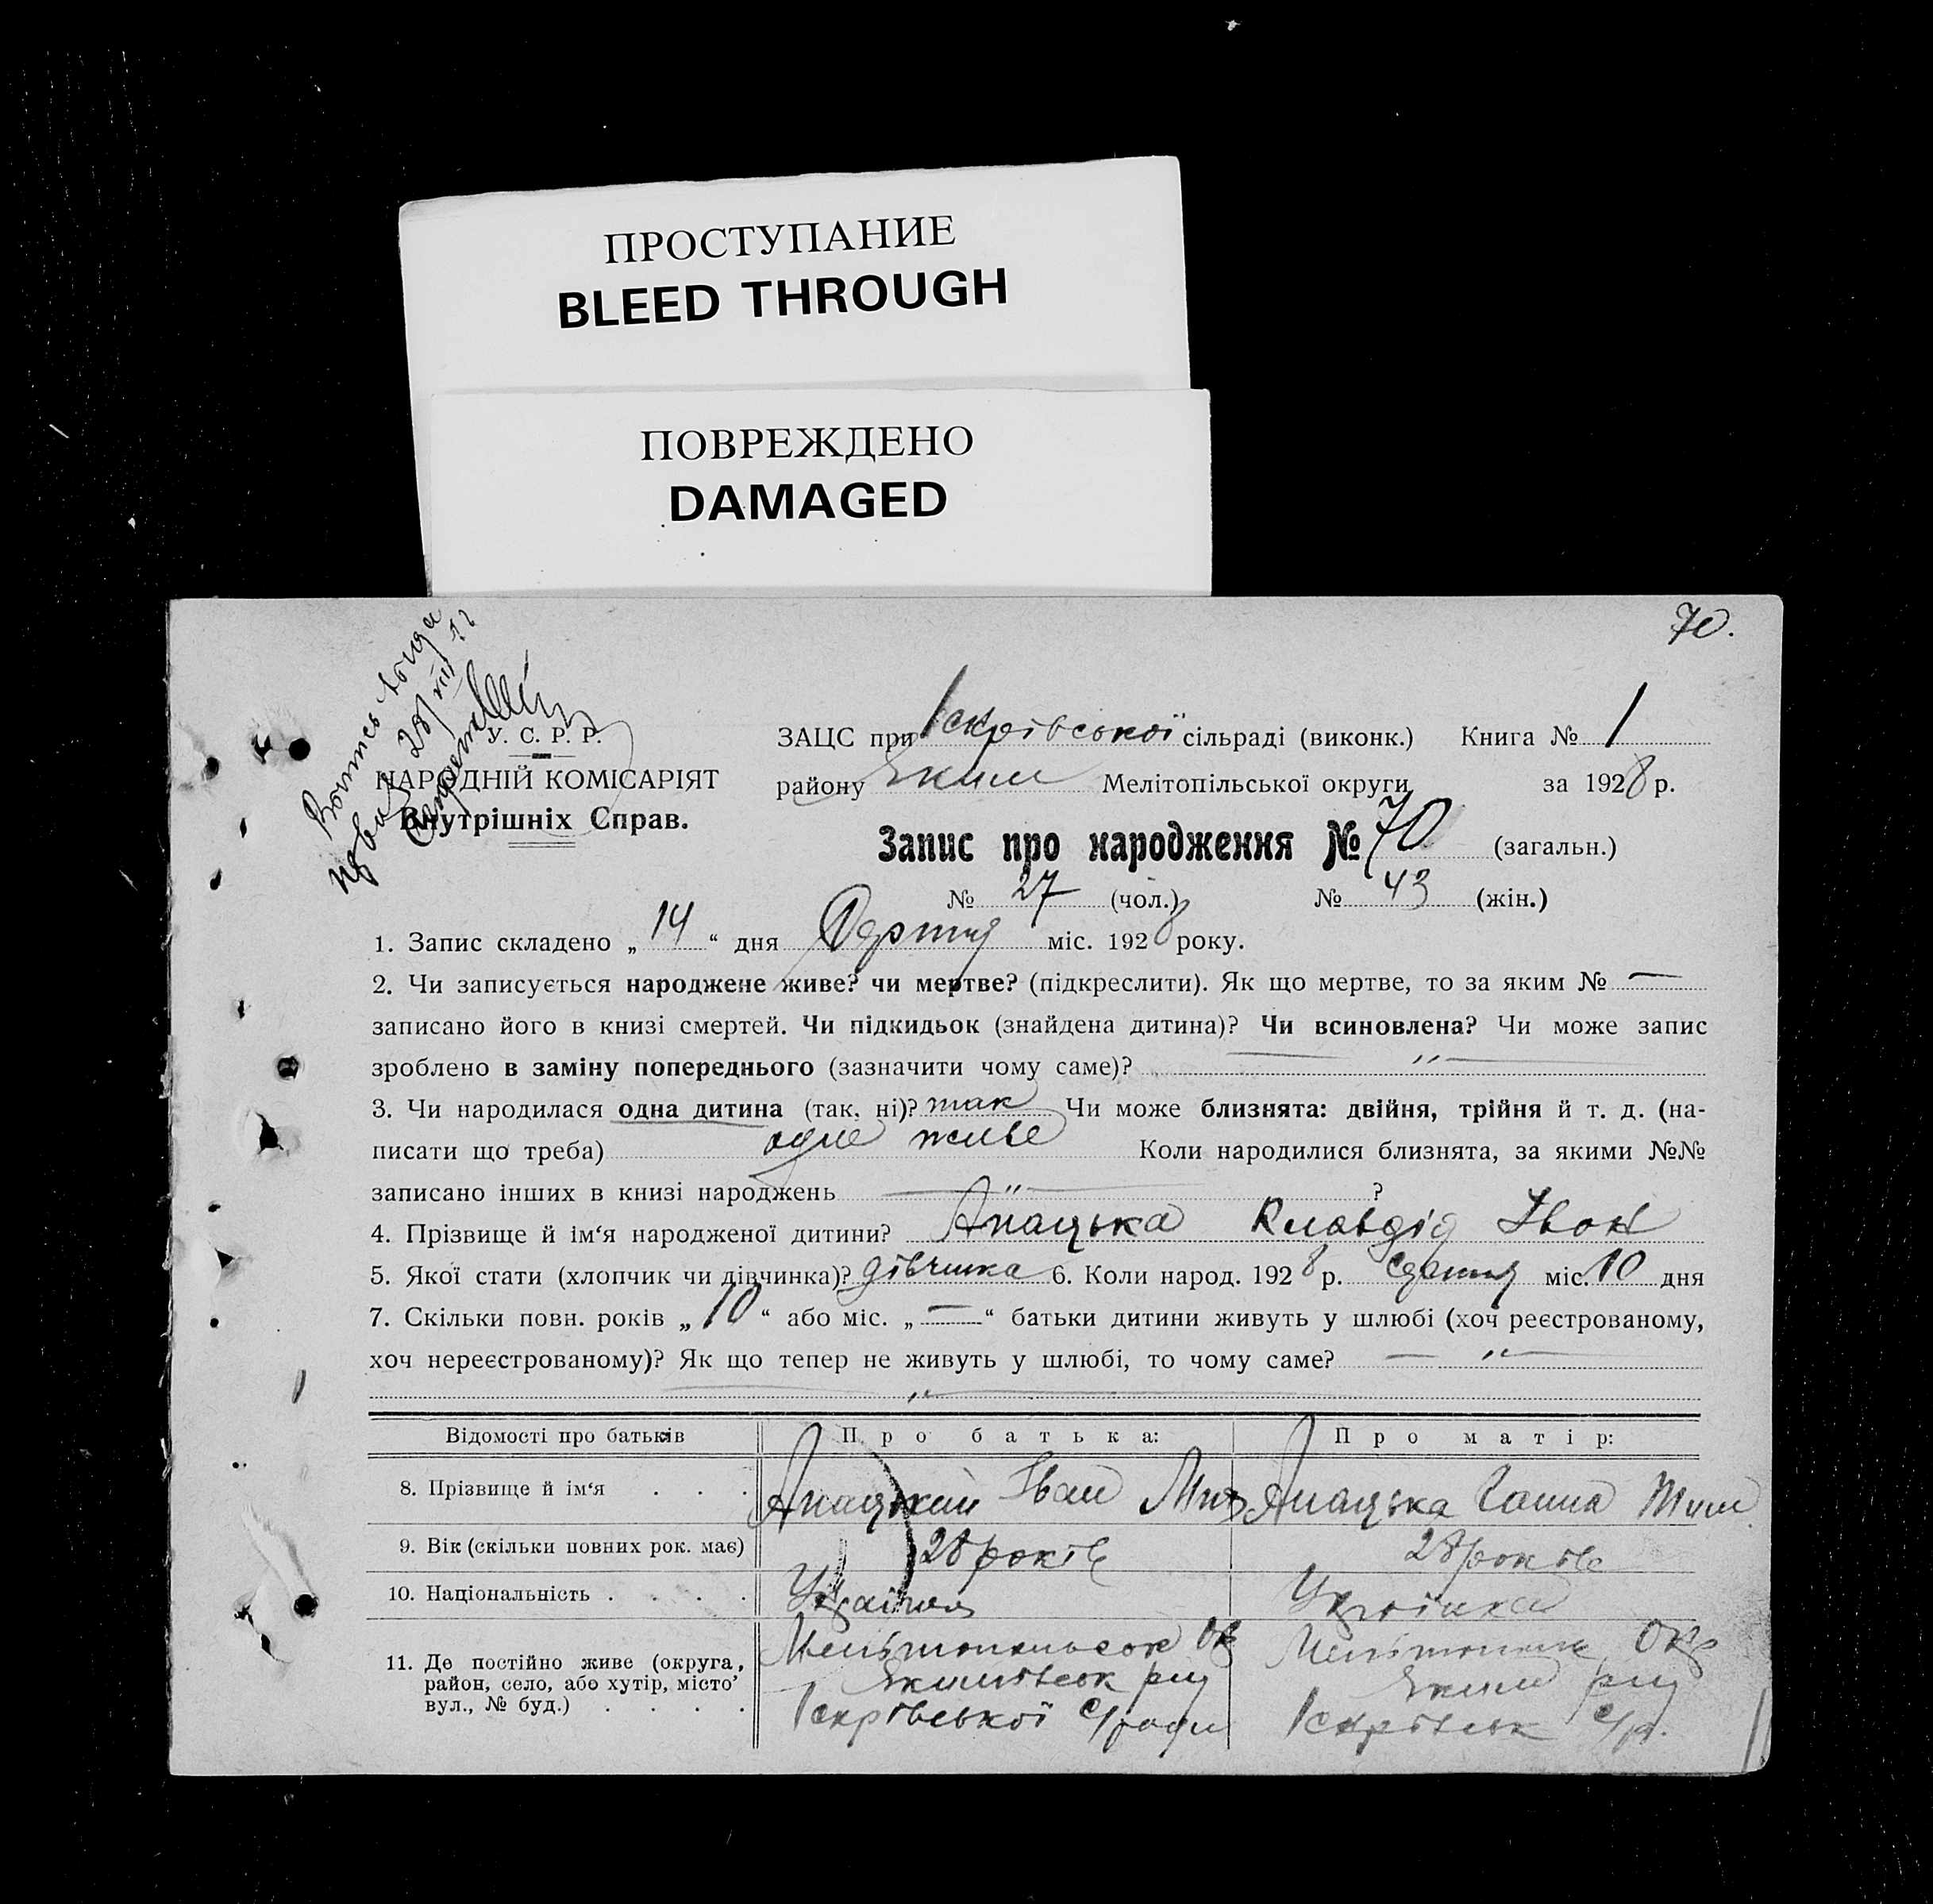 ПРОСТУПАНИЕ
BLEED THROUGH
ПОВРЕЖДЕНО
DAMAGED
70.
У. С. Р. Р.
НАРОДНІЙ КОМІСАРІЯТ
Внутрішніх Справ.
ЗАЦС при Іскрівської сільраді (виконк.) Книга № 1
району Яким Мелітопільської округи за 1928 р.
Запис про народження № 70 (загальн.)
№ 27 (чол.) № 43 (жін.)
1. Запис складено „ 14 “ дня міс. 1928 року.
2. Чи записується народжене живе? чи мертве? (підкреслити). Як що мертве, то за яким № —
записано його в книзі смертей. Чи підкидьок (знайдена дитина)? Чи всиновлена? Чи може запис
зроблено в заміну попереднього (зазначити чому саме)? — „ —
3. Чи народилася одна дитина (так, ні)? так Чи може близнята: двійня, трійня й т. д. (на-
писати що треба) одне живе Коли народилися близнята, за якими №№
записано інших в книзі народжень — „ — ?
4. Прізвище й ім‘я народженої дитини? Апацька Клавдія Іван
5. Якої стати (хлопчик чи дівчинка)? дівчинка 6. Коли народ. 1928 р. міс. 10 дня
7. Скільки повн. років „ 10 “ або міс. „ — “ батьки дитини живуть у шлюбі (хоч реєстрованому,
хоч нереєстрованому)? Як що тепер не живуть у шлюбі, то чому саме? — „ —
— „ —
Відомості про батьків Про батька: Про матір:
8. Прізвище й ім‘я . . . Апацький Іван Апацька Ганна Тим
9. Вік (скільки повних рок. має) 28 років 28 років
10. Національність . . . . Українка
11. Де постійно живе (округа, район, село, або хутір, місто, вул., № буд.) . . . .
Мелітопільськ Ок Мелітопільк Окр
Якимівськ рну Яким рну
Іскрівської с/ради Іскрівськ с/р.